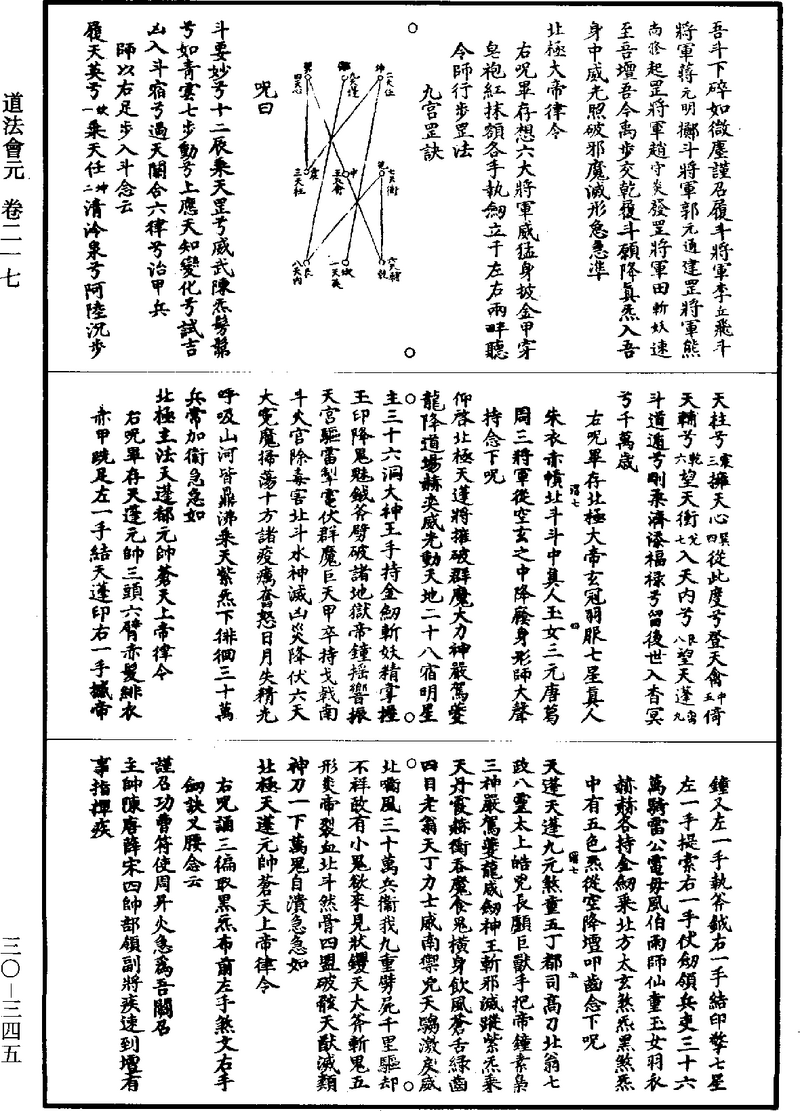 道法會元 卷二一七
三〇—三四五
吾斗下碎如微塵謹召履斗將軍李丘飛斗
將軍蔣元明擲斗將軍郭元通建罡將軍熊
尚修起罡將軍趙守炎發罡將軍田斬妖速
至吾壇吾今禹步交乾履斗願降真炁入吾
身中威光照破邪魔滅形急急準
北極大帝律令
右呪畢存想六大將軍威猛身披金甲穿
皂袍紅抹額各手執劒立于左右兩畔聽
令師行步罡法
九宮罡訣
坤
二天任
離
九天蓬
巽
四天心
兌
七天衝
中
五天禽
震
三天柱
乾
六天輔
坎
一天英
艮
八天內
呪曰
斗要妙兮十二辰乘天罡兮威武陳炁髣髴
兮如青雲七步動兮上應天知變化兮試吉
凶入斗宿兮過天關合六律兮治甲兵
師以右足步入斗念云
履天英兮坎一乘天任坤二清冷泉兮阿陸沉步
天柱兮震三擁天心巽四從此度兮登天禽中五倚
天輔兮乾六望天衝兌七入天內兮艮八望天蓬离九
斗道通兮剛柔濟添福祿兮留後世入杳冥
兮千萬歲
右呪畢存北極大帝玄冠羽服七星真人
朱衣赤幘北斗斗中真人玉女三元唐葛
周三將軍從空玄之中降廢身形師大聲
持念下呪
仰啓北極天蓬將摧破群魔大力神嚴駕夔
龍降道場赫奕威光動天地二十八宿明星
主三十六洞大神王手持金劒斬妖精掌握
玉印降鬼魅鉞斧劈破諸地獄帝鐘摇響振
天宮驅雷掣電伏群魔巨天甲卒持戈戟南
斗火官除毒害北斗水神滅凶災降伏六天
大寃魔掃蕩十方諸疫癘奮怒日月失精光
呼吸山河皆鼎沸乘天紫炁下徘徊三十萬
兵常加衞急急如
北極主法天蓬都元帥蒼天上帝律令
右呪畢存天蓬元帥三頭六臂赤髮緋衣
赤甲跣足左一手結天蓬印右一手撼帝
鐘又左一手執斧鉞右一手結印擎七星
左一手提索右一手伏劒領兵吏三十六
萬騎雷公電母風伯雨師仙童玉女羽衣
赫赫各持金劒乘北方太玄煞炁黑煞炁
中有五色炁從空降壇叩齒念下呪
天蓬天蓬九元煞童五丁都司高刀北翁七
政八靈太上皓兇長顱巨獸手把帝鐘素梟
三神嚴駕夔龍威劒神王斬邪滅蹤紫炁乘
天丹霞赫衝吞魔食鬼橫身飲風蒼舌綠齒
四目老翁天丁力士威南禦兇天騶激戾威
北嘀風三十萬兵衞我九重劈尸千里驅却
不祥敢有小鬼欲來見狀钁天大斧斬鬼五
形炎帝裂血北斗然骨四盟破骸天猷滅類
神刀一下萬鬼自潰急急如
北極天蓬元帥蒼天上帝律令
右呪誦三徧取黑炁布前左手煞文右手
劒訣叉腰念云
謹召功曹符使周昇火急爲吾關召
主帥陳唐薛宋四帥部領副將疾速到壇有
事指揮疾